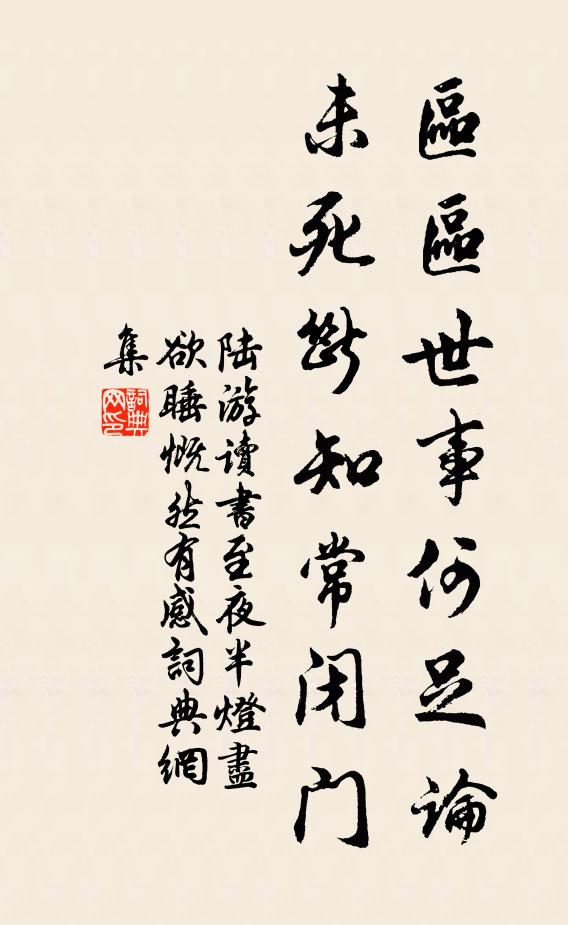 區區世事何足論
未死斷知常闭门
陆游讀書至夜半燈盡
欲睡慨然有感詞典網
集
詞典
网印